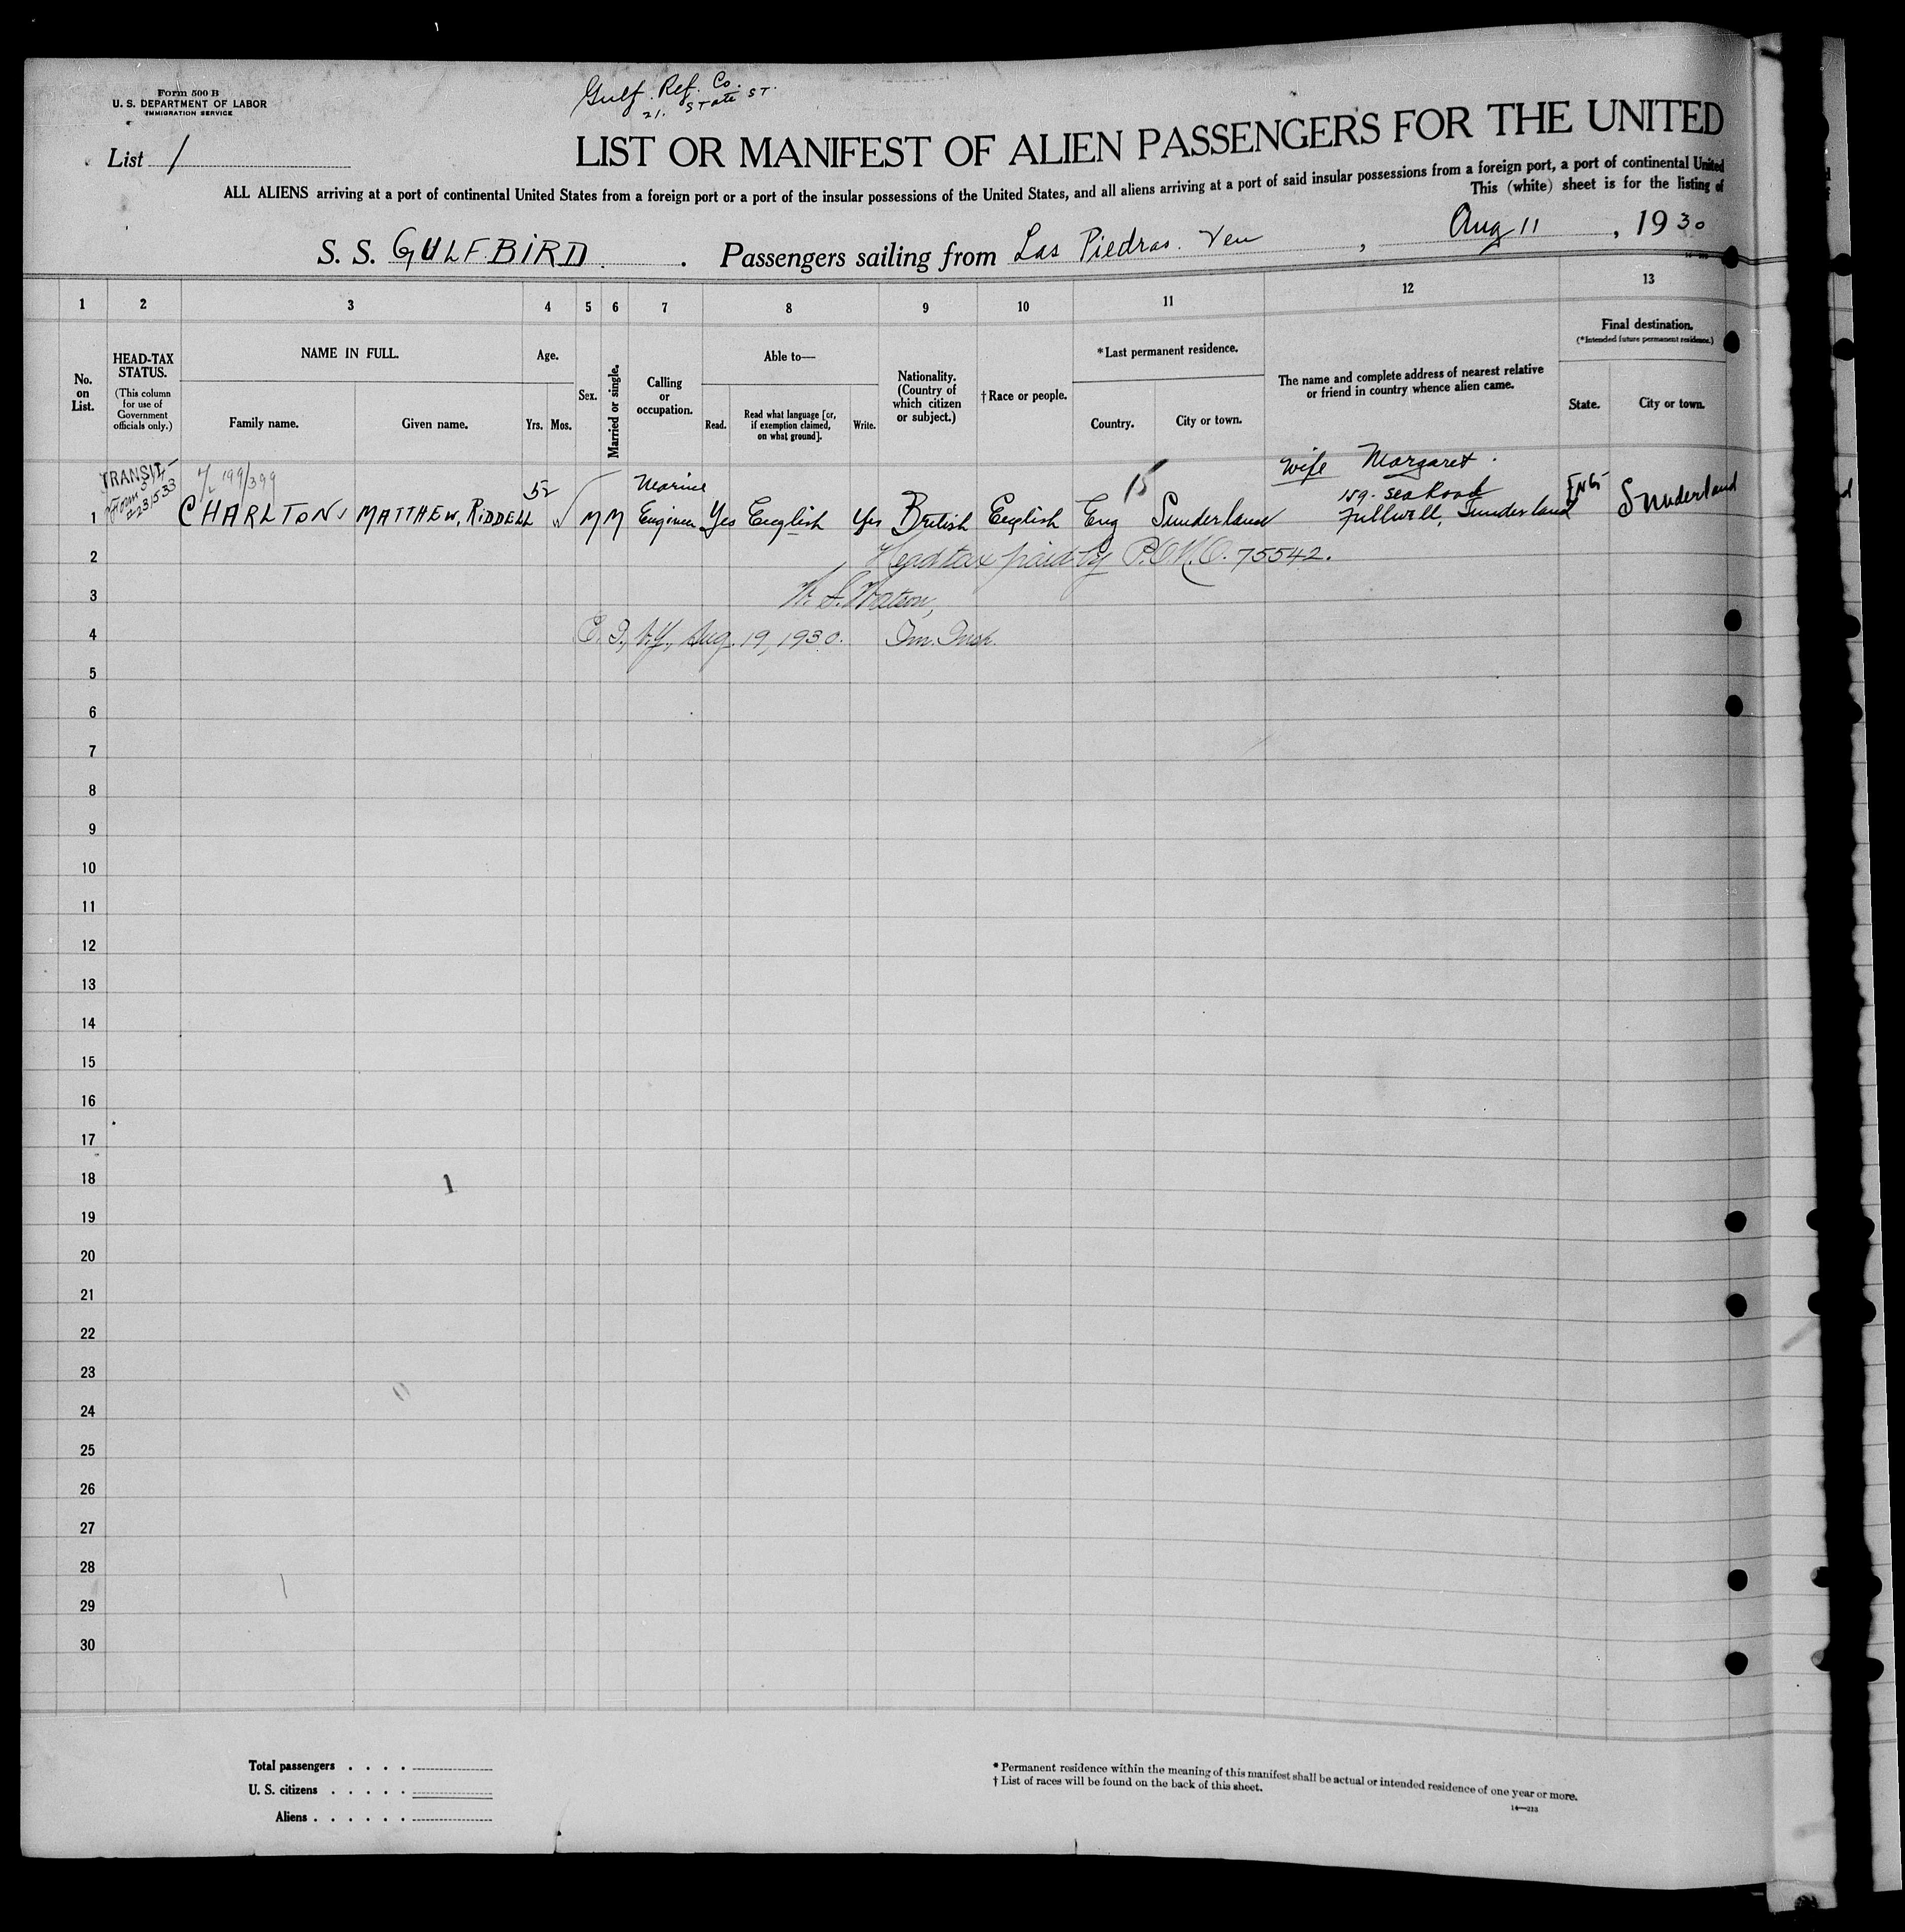 Form 500 B
U. S. DEPARTMENT OF LABOR
IMMIGRATION SERVICE
Gulf. Ref. Co.
21. State ST.
List 1
LIST OR MANIFEST OF ALIEN PASSENGERS FOR THE UNITED
ALL ALIENS arriving at a port of continental United States from a foreign port or a port of the insular possessions of the United States, and all aliens arriving at a port of said insular possessions from a foreign port, a port of continental United
This (white) sheet is for the listing of
S. S. GULFBIRD. Passengers sailing from Las Piedras. Ven, Aug 11, 1930
1 2 3 4 5 6 7 8 9 10 11 12 13
No. on List.
HEAD-TAX STATUS.
(This column for use of Government officials only.)
NAME IN FULL.
Family name. Given name.
Age.
Yrs. Mos.
Sex.
Married or single.
Calling or occupation.
Able to—
Read. Read what language [or, if exemption claimed, on what ground]. Write.
Nationality. (Country of which citizen or subject.)
†Race or people.
*Last permanent residence.
Country. City or town.
The name and complete address of nearest relative or friend in country whence alien came.
Final destination.
(*Intended future permanent residence.)
State. City or town.
TRANSIT 199/399 52 Marine 15 Wife Margaret.
159. Sea Road ENG
1 CHARLTON MATTHEW, RIDDELL M M Engineer Yes English Yes British English Eng Sunderland Fullwell, Sunderland Sunderland
2 Head tax paid by 75542.
3 Watson,
4 Aug. 19, 1930. Im. Insp.
5
6
7
8
9
10
11
12
13
14
15
16
17
18 1
19
20
21
22
23
24
25
26
27
28
29
30
Total passengers . . . . .
U. S. citizens . . . . .
Aliens . . . . . .
* Permanent residence within the meaning of this manifest shall be actual or intended residence of one year or more.
† List of races will be found on the back of this sheet.
14—213